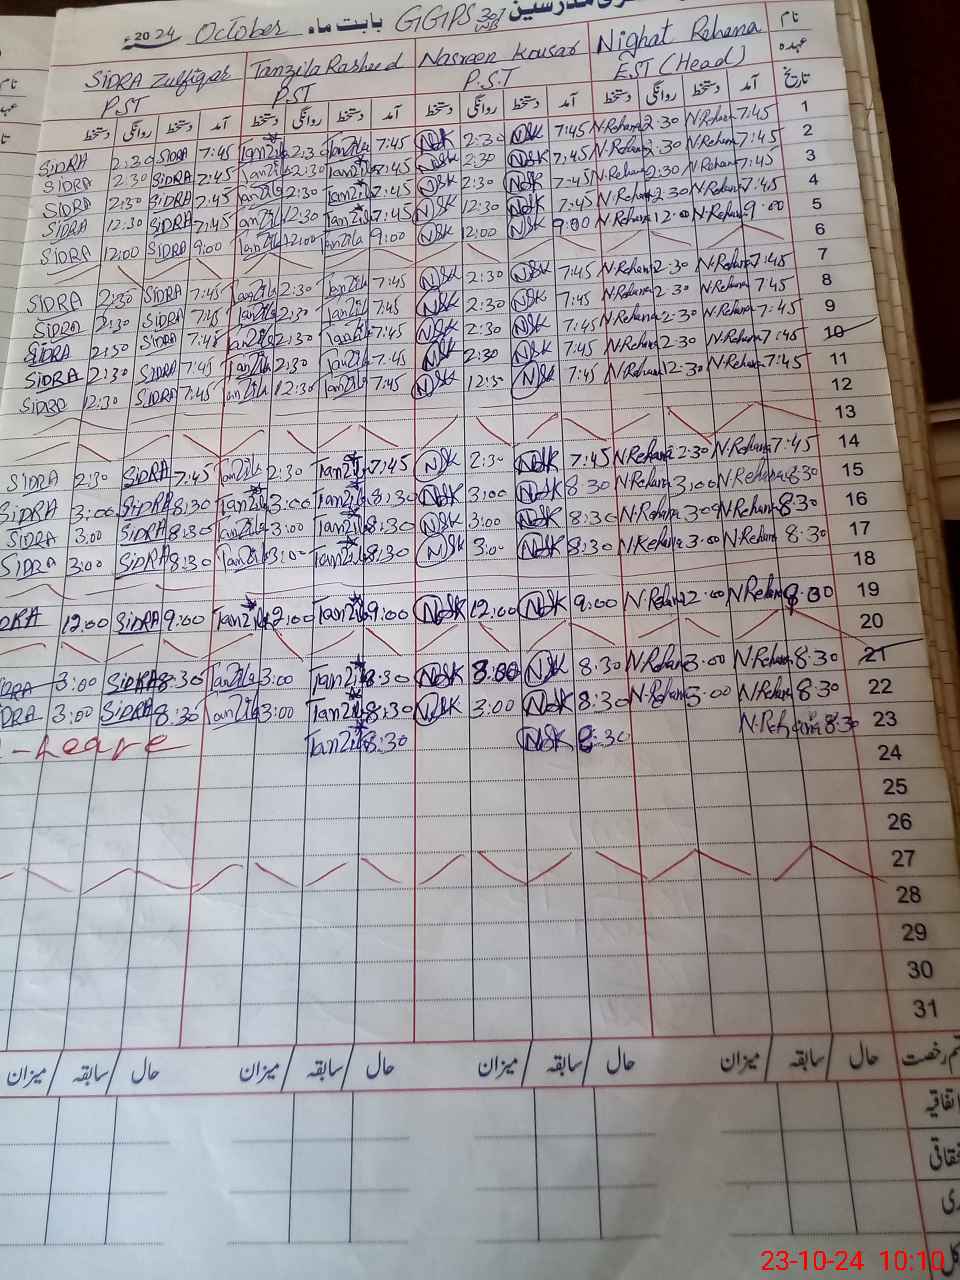 مدرسین بابت ماہ October 2024ء GGPS
نام Nighat Rehana Nasreen Kousar Tanzila Rasheed SIDRA Zulfiqar
عہدہ EST (Head) P.S.T PST PST
تاریخ آمد دستخط روانگی دستخط آمد دستخط روانگی دستخط آمد دستخط روانگی دستخط آمد دستخط روانگی دستخط
1 7:45 N.Rehana 2:30 N.Rehana 7:45 NSK 2:30 NSK 7:45 Tanzila 2:30 Tanzila 7:45 SIDRA 2:30 SIDRA
2 7:45 N.Rehana 2:30 N.Rehana 7:45 NSK 2:30 NSK 7:45 Tanzila 2:30 Tanzila 7:45 SIDRA 2:30 SIDRA
3 7:45 N.Rehana 2:30 N.Rehana 7:45 NSK 2:30 NSK 7:45 Tanzila 2:30 Tanzila 7:45 SIDRA 2:30 SIDRA
4 7:45 N.Rehana 2:30 N.Rehana 7:45 NSK 12:30 NSK 7:45 Tanzila 12:30 Tanzila 7:45 SIDRA 12:30 SIDRA
5 9:00 N.Rehana 12:00 N.Rehana 9:00 NSK 12:00 NSK 9:00 Tanzila 12:00 Tanzila 9:00 SIDRA 12:00 SIDRA
6
7 7:45 N.Rehana 2:30 N.Rehana 7:45 NSK 2:30 NSK 7:45 Tanzila 2:30 Tanzila 7:45 SIDRA 2:30 SIDRA
8 7:45 N.Rehana 2:30 N.Rehana 7:45 NSK 2:30 NSK 7:45 Tanzila 2:30 Tanzila 7:45 SIDRA 2:30 SIDRA
9 7:45 N.Rehana 2:30 N.Rehana 7:45 NSK 2:30 NSK 7:45 Tanzila 2:30 Tanzila 7:45 SIDRA 2:30 SIDRA
10 7:45 N.Rehana 2:30 N.Rehana 7:45 NSK 2:30 NSK 7:45 Tanzila 2:30 Tanzila 7:45 SIDRA 2:30 SIDRA
11 7:45 N.Rehana 12:30 N.Rehana 7:45 NSK 12:30 NSK 7:45 Tanzila 12:30 Tanzila 7:45 SIDRA 12:30 SIDRA
12
13
14 7:45 N.Rehana 2:30 N.Rehana 7:45 NSK 2:30 NSK 7:45 Tanzila 2:30 Tanzila 7:45 SIDRA 2:30 SIDRA
15 8:30 N.Rehana 3:00 N.Rehana 8:30 NSK 3:00 NSK 8:30 Tanzila 3:00 Tanzila 8:30 SIDRA 3:00 SIDRA
16 8:30 N.Rehana 3:00 N.Rehana 8:30 NSK 3:00 NSK 8:30 Tanzila 3:00 Tanzila 8:30 SIDRA 3:00 SIDRA
17 8:30 N.Rehana 3:00 N.Rehana 8:30 NSK 3:00 NSK 8:30 Tanzila 3:00 Tanzila 8:30 SIDRA 3:00 SIDRA
18
19 9:00 N.Rehana 12:00 N.Rehana 9:00 NSK 12:00 NSK 9:00 Tanzila 12:00 Tanzila 9:00 SIDRA 12:00 SIDRA
20
21 8:30 N.Rehana 3:00 N.Rehana 8:30 NSK 3:00 NSK 8:30 Tanzila 3:00 Tanzila 8:30 SIDRA 3:00 SIDRA
22 8:30 N.Rehana 3:00 N.Rehana 8:30 NSK 3:00 NSK 8:30 Tanzila 3:00 Tanzila 8:30 SIDRA 3:00 SIDRA
23 8:30 N.Rehana 8:30 NSK 8:30 Tanzila Leave
24
25
26
27
28
29
30
31
رخصت حال سابقہ میزان حال سابقہ میزان حال سابقہ میزان حال سابقہ میزان
اتفاقیہ
23-10-24 10:10